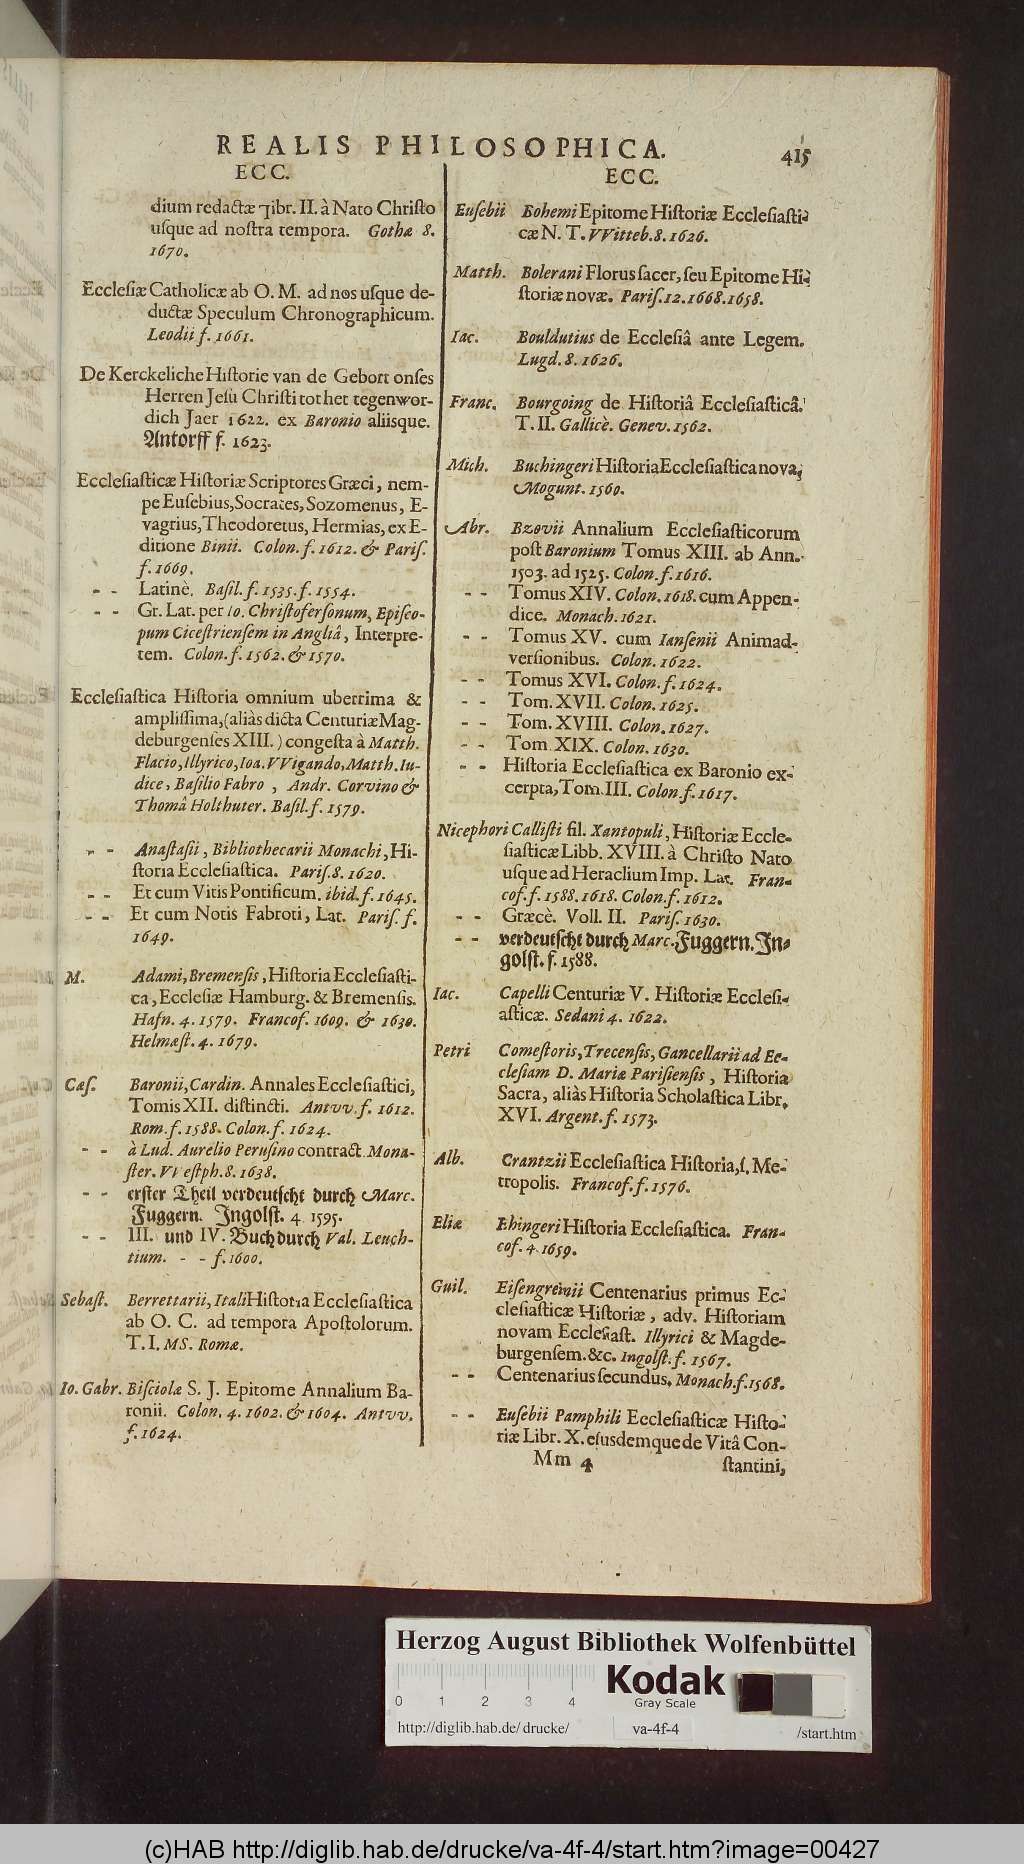 REALIS PHILOSOPHICA.
415
ECC.
dium redactæ ꝗibr. II. à Nato Chriſto
uſque ad noſtra tempora. Gothæ 8.
1670.
Eccleſiæ Catholicæ ab O. M. ad nos uſque de-
ductæ Speculum Chronographicum.
Leodii f. 1661.
De Kerckeliche Hiſtorie van de Gebort onſes
Herren Jeſu Chriſti tot het tegenwor-
dich Jaer 1622. ex Baronio aliisque.
Antorff f. 1623.
Eccleſiaſticæ Hiſtoriæ Scriptores Græci, nem-
pe Euſebius, Socrates, Sozomenus, E-
vagrius, Theodoretus, Hermias, ex E-
ditione Binii. Colon. f. 1612. & Pariſ.
f. 1669.
- - Latinè. Baſil. f. 1535. f. 1554.
- - Gr. Lat. per Io. Chriſtoferſonum, Epiſco-
pum Ciceſtrienſem in Angliâ, Interpre-
tem. Colon. f. 1562. & 1570.
Eccleſiaſtica Hiſtoria omnium uberrima &
ampliſſima, (aliàs dicta Centuriæ Mag-
deburgenſes XIII.) congeſta à Matth.
Flacio, Illyrico, Ioa. VVigando, Matth. Iu-
dice, Baſilio Fabro, Andr. Corvino &
Thomâ Holthuter. Baſil. f. 1579.
- - Anaſtaſii, Bibliothecarii Monachi, Hi-
ſtoria Eccleſiaſtica. Pariſ. 8. 1620.
- - Et cum Vitis Pontificum. ibid. f. 1645.
- - Et cum Notis Fabroti, Lat. Pariſ. f.
1649.
M. Adami, Bremenſis, Hiſtoria Eccleſiaſti-
ca, Eccleſiæ Hamburg. & Bremenſis.
Hafn. 4. 1579. Francof. 1609. & 1630.
Helmæſt. 4. 1679.
Cæſ. Baronii, Cardin. Annales Eccleſiaſtici,
Tomis XII. diſtincti. Antvv. f. 1612.
Rom. f. 1588. Colon. f. 1624.
- - à Lud. Aurelio Peruſino contract. Mona-
ſter. VVeſtph. 8. 1638.
- - erſter Theil verdeutſcht durch Marc.
Fuggern. Ingolſt. 4. 1595.
- - III. und IV. Buch durch Val. Leuch-
tium. - - f. 1600.
Sebaſt. Berrettarii, Itali Hiſtoria Eccleſiaſtica
ab O. C. ad tempora Apoſtolorum.
T. I. MS. Romæ.
Io. Gabr. Biſciolæ S. J. Epitome Annalium Ba-
ronii. Colon. 4. 1602. & 1604. Antvv.
f. 1624.
ECC.
Euſebii Bohemi Epitome Hiſtoriæ Eccleſiaſti-
cæ N. T. VVitteb. 8. 1626.
Matth. Bolerani Florus ſacer, ſeu Epitome Hi-
ſtoriæ novæ. Pariſ. 12. 1668. 1658.
Iac. Bouldutius de Eccleſiâ ante Legem.
Lugd. 8. 1626.
Franc. Bourgoing de Hiſtoriâ Eccleſiaſticâ.
T. II. Gallicè. Genev. 1562.
Mich. Buchingeri Hiſtoria Eccleſiaſtica nova,
Mogunt. 1560.
Abr. Bzovii Annalium Eccleſiaſticorum
poſt Baronium Tomus XIII. ab Ann.
1503. ad 1525. Colon. f. 1616.
- - Tomus XIV. Colon. 1618. cum Appen-
dice. Monach. 1621.
- - Tomus XV. cum Ianſenii Animad-
verſionibus. Colon. 1622.
- - Tomus XVI. Colon. f. 1624.
- - Tom. XVII. Colon. 1625.
- - Tom. XVIII. Colon. 1627.
- - Tom. XIX. Colon. 1630.
- - Hiſtoria Eccleſiaſtica ex Baronio ex-
cerpta, Tom. III. Colon. f. 1617.
Nicephori Calliſti fil. Xantopuli, Hiſtoriæ Eccle-
ſiaſticæ Libb. XVIII. à Chriſto Nato
uſque ad Heraclium Imp. Lat. Fran-
cof. f. 1588. 1618. Colon. f. 1612.
- - Græcè. Voll. II. Pariſ. 1630.
- - verdeutſcht durch Marc. Fuggern. In-
golſt. f. 1588.
Iac. Capelli Centuriæ V. Hiſtoriæ Eccleſi-
aſticæ. Sedani 4. 1622.
Petri Comeſtoris, Trecenſis, Gancellarii ad Ec-
cleſiam D. Mariæ Pariſienſis, Hiſtoria
Sacra, aliàs Hiſtoria Scholaſtica Libr.
XVI. Argent. f. 1573.
Alb. Crantzii Eccleſiaſtica Hiſtoria, ſ. Me-
tropolis. Francof. f. 1576.
Eliæ Ehingeri Hiſtoria Eccleſiaſtica. Fran-
cof. 4. 1659.
Guil. Eiſengreinii Centenarius primus Ec-
cleſiaſticæ Hiſtoriæ, adv. Hiſtoriam
novam Eccleſiaſt. Illyrici & Magde-
burgenſem. &c. Ingolſt. f. 1567.
- - Centenarius ſecundus. Monach. f. 1568.
- - Euſebii Pamphili Eccleſiaſticæ Hiſto-
riæ Libr. X. ejusdemque de Vitâ Con-
Mm 4 ſtantini,
Herzog August Bibliothek Wolfenbüttel
0 1 2 3 4
Kodak
Gray Scale
http://diglib.hab.de/drucke/ va-4f-4 /start.htm
(c)HAB http://diglib.hab.de/drucke/va-4f-4/start.htm?image=00427